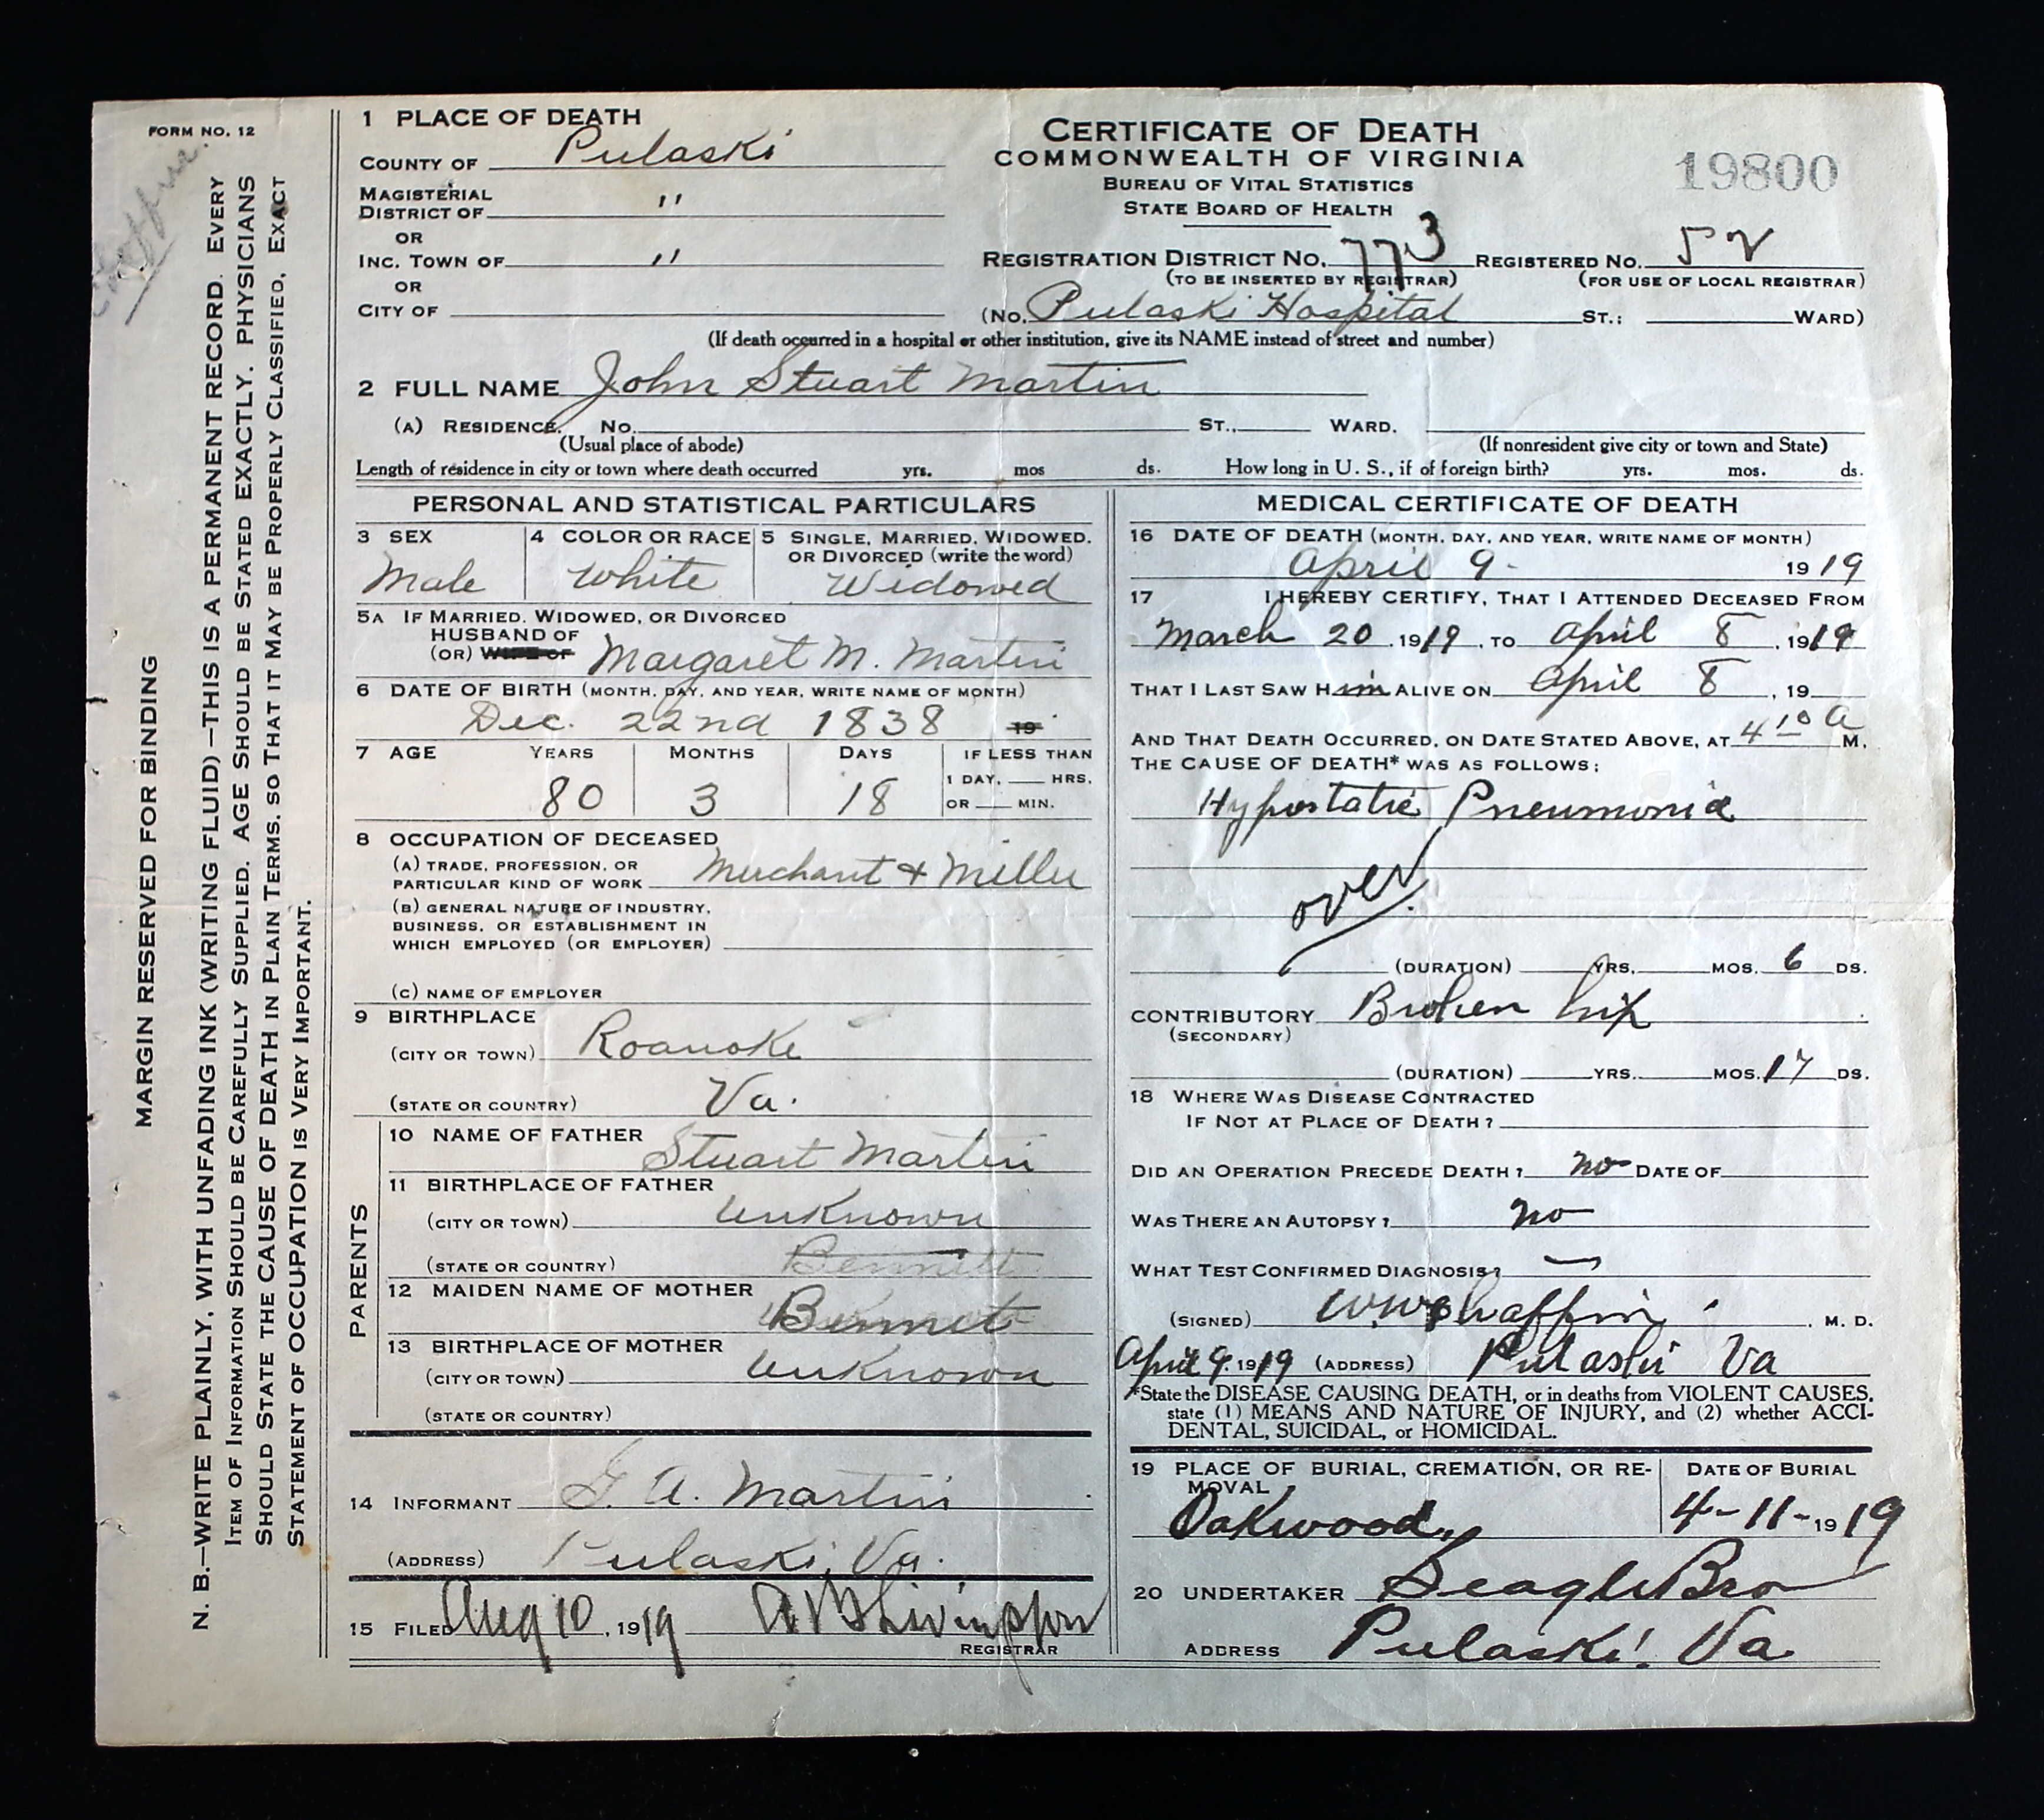 FORM NO. 12
MARGIN RESERVED FOR BINDING
N. B.—WRITE PLAINLY, WITH UNFADING INK (WRITING FLUID)—THIS IS A PERMANENT RECORD. EVERY
ITEM OF INFORMATION SHOULD BE CAREFULLY SUPPLIED. AGE SHOULD BE STATED EXACTLY. PHYSICIANS
SHOULD STATE THE CAUSE OF DEATH IN PLAIN TERMS, SO THAT IT MAY BE PROPERLY CLASSIFIED. EXACT
STATEMENT OF OCCUPATION IS VERY IMPORTANT.
CERTIFICATE OF DEATH
COMMONWEALTH OF VIRGINIA
BUREAU OF VITAL STATISTICS
STATE BOARD OF HEALTH
19800
1 PLACE OF DEATH
COUNTY OF Pulaski
MAGISTERIAL
DISTRICT OF "
OR
INC. TOWN OF "
OR
CITY OF
REGISTRATION DISTRICT NO. 773 REGISTERED NO. 52
(TO BE INSERTED BY REGISTRAR) (FOR USE OF LOCAL REGISTRAR)
(No. Pulaski Hospital ST.; WARD)
(If death occurred in a hospital or other institution, give its NAME instead of street and number)
2 FULL NAME John Stuart Martin
(A) RESIDENCE. No. ST., WARD.
(Usual place of abode) (If nonresident give city or town and State)
Length of residence in city or town where death occurred yrs. mos ds. How long in U. S., if of foreign birth? yrs. mos. ds.
PERSONAL AND STATISTICAL PARTICULARS
3 SEX 4 COLOR OR RACE 5 SINGLE, MARRIED, WIDOWED,
OR DIVORCED (write the word)
Male White Widowed
5A IF MARRIED, WIDOWED, OR DIVORCED
HUSBAND OF
(OR) WIFE OF Margaret M. Martin
6 DATE OF BIRTH (MONTH, DAY, AND YEAR, WRITE NAME OF MONTH)
Dec. 22nd 1838 19
7 AGE YEARS MONTHS DAYS IF LESS THAN
1 DAY, HRS.
80 3 18 OR MIN.
8 OCCUPATION OF DECEASED
(A) TRADE, PROFESSION, OR
PARTICULAR KIND OF WORK Merchant & Miller
(B) GENERAL NATURE OF INDUSTRY,
BUSINESS, OR ESTABLISHMENT IN
WHICH EMPLOYED (OR EMPLOYER)
(C) NAME OF EMPLOYER
9 BIRTHPLACE
(CITY OR TOWN) Roanoke
(STATE OR COUNTRY) Va.
PARENTS
10 NAME OF FATHER
Stuart Martin
11 BIRTHPLACE OF FATHER
(CITY OR TOWN) Unknown
(STATE OR COUNTRY) Bennett
12 MAIDEN NAME OF MOTHER
Bennet
13 BIRTHPLACE OF MOTHER
(CITY OR TOWN) Unknown
(STATE OR COUNTRY)
14 INFORMANT G. A. Martin
(ADDRESS) Pulaski, Va.
15 FILED Aug 10, 1919
REGISTRAR
MEDICAL CERTIFICATE OF DEATH
16 DATE OF DEATH (MONTH, DAY, AND YEAR, WRITE NAME OF MONTH)
April 9- 1919
17 I HEREBY CERTIFY, THAT I ATTENDED DECEASED FROM
March 20, 1919, TO April 8, 1919
THAT I LAST SAW Him ALIVE ON April 8, 19
AND THAT DEATH OCCURRED, ON DATE STATED ABOVE, AT 4 10 a M.
THE CAUSE OF DEATH* WAS AS FOLLOWS:
Hypostatic Pneumonia
over
(DURATION) YRS. MOS. 6 DS.
CONTRIBUTORY Broken hip
(SECONDARY)
(DURATION) YRS. MOS. 17 DS.
18 WHERE WAS DISEASE CONTRACTED
IF NOT AT PLACE OF DEATH?
DID AN OPERATION PRECEDE DEATH? no DATE OF
WAS THERE AN AUTOPSY? no
WHAT TEST CONFIRMED DIAGNOSIS? —
(SIGNED) W.W. Chaffin, M. D.
April 9, 1919 (ADDRESS) Pulaski Va
*State the DISEASE CAUSING DEATH, or in deaths from VIOLENT CAUSES,
state (1) MEANS AND NATURE OF INJURY, and (2) whether ACCI-
DENTAL, SUICIDAL, or HOMICIDAL.
19 PLACE OF BURIAL, CREMATION, OR RE-
MOVAL DATE OF BURIAL
Oakwood, 4-11-1919
20 UNDERTAKER Seagle Bro
ADDRESS Pulaski, Va